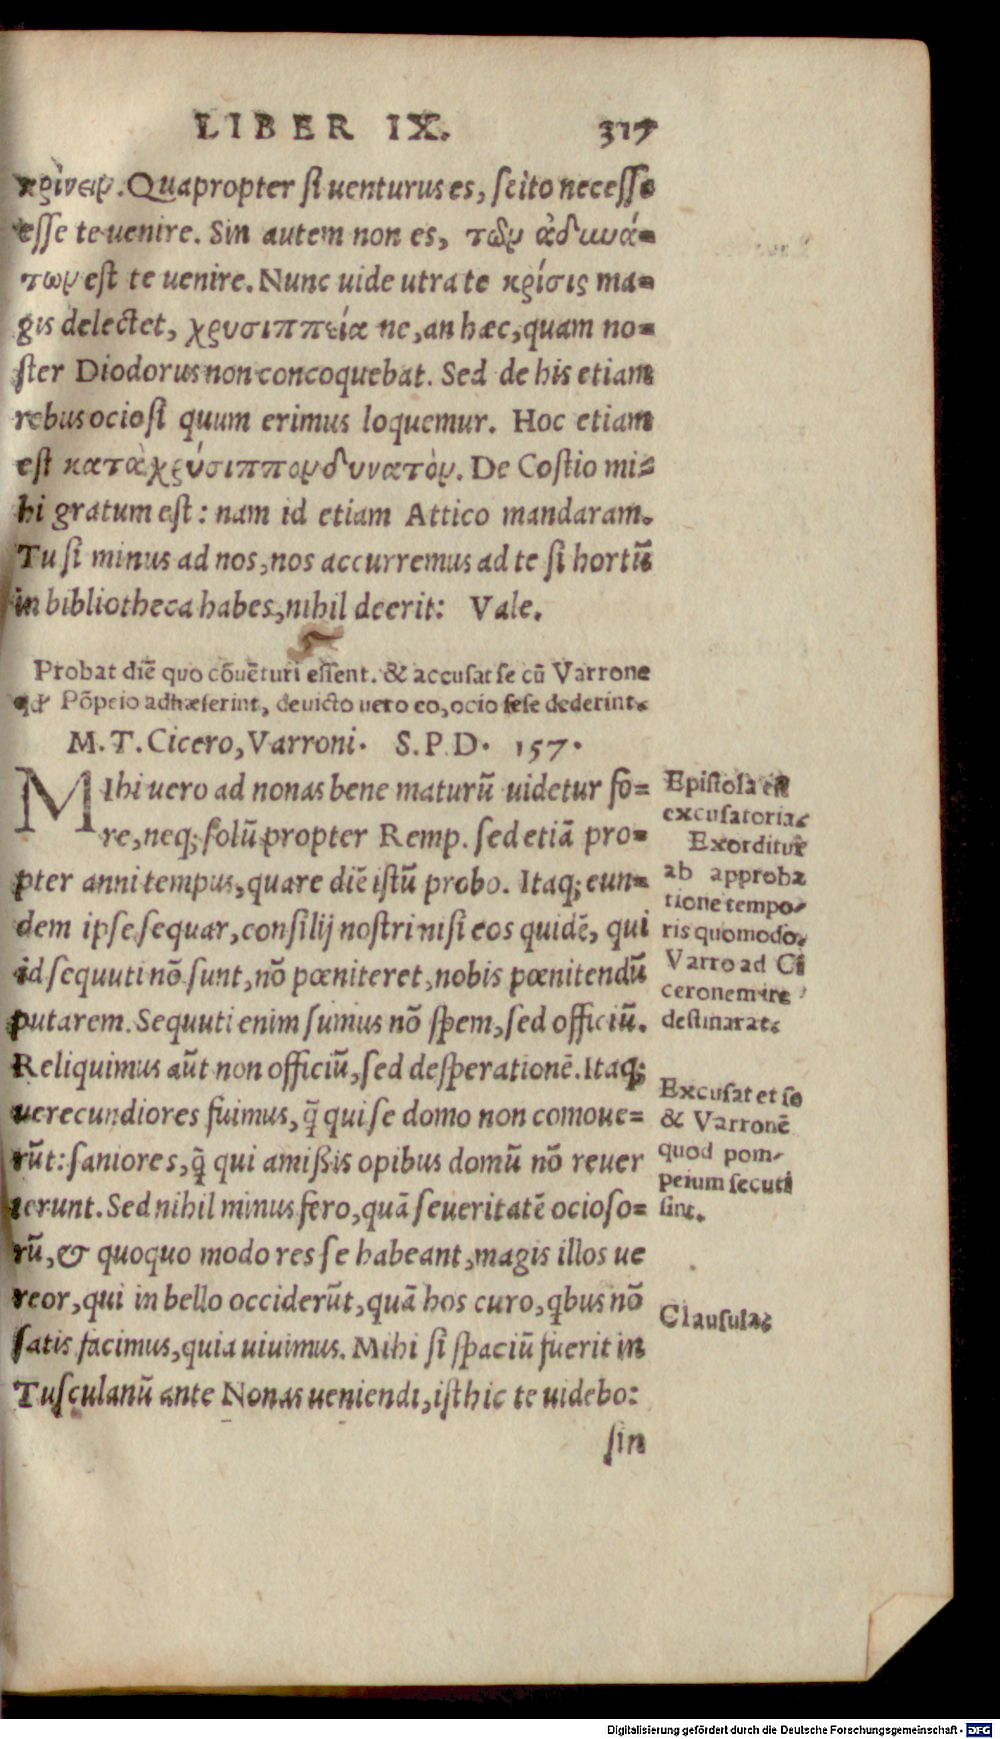 LIBER IX. 317
κρίνειν. Quapropter si uenturus es, scito necesse
esse te uenire. Sin autem non es, τῶν ἀδυνά=
των est te uenire. Nunc uide utra te κρίσις ma=
gis delectet, χρυσιππεία ne, an hæc, quam no=
ster Diodorus non concoquebat. Sed de his etiam
rebus ociosi quum erimus loquemur. Hoc etiam
est κατὰ χρύσιππον δυνατὸν. De Costio mi=
hi gratum est: nam id etiam Attico mandaram.
Tu si minus ad nos, nos accurremus ad te si hortũ
in bibliotheca habes, nihil deerit: Vale.
Probat diẽ quo cõuẽturi essent. & accusat se cũ Varrone
qd' Põpeio adhæserint, deuicto uero eo, ocio sese dederint.
M. T. Cicero, Varroni. S. P. D. 157.
MIhi uero ad nonas bene maturũ uidetur fo=
re, neq; solũ propter Remp. sed etiã pro=
pter anni tempus, quare diẽ istũ probo. Itaq; eun=
dem ipse sequar, consilij nostri nisi eos quidẽ, qui
id sequuti nõ sunt, nõ pœniteret, nobis pœnitendũ
putarem. Sequuti enim sumus nõ spem, sed officiũ.
Reliquimus aũt non officiũ, sed desperationẽ. Itaq;
uerecundiores fuimus, q̃ qui se domo non comoue=
rũt: saniores, q̃ qui amißis opibus domũ nõ reuer
terunt. Sed nihil minus fero, quã seueritatẽ ocioso=
rũ, & quoquo modo res se habeant, magis illos ue
reor, qui in bello occiderũt, quã hos curo, qbus nõ
satis facimus, quia uiuimus. Mihi si spaciũ fuerit in
Tusculanũ ante Nonas ueniendi, isthic te uidebo:
sin
Epistola est
excusatoria.
Exorditur
ab approba
tione tempo-
ris quomodo,
Varro ad Ci
ceronem ire
destinarat.
Excusat et se
& Varronẽ
quod pom-
peium secuti
sint.
Clausula.
Digitalisierung gefördert durch die Deutsche Forschungsgemeinschaft - DFG